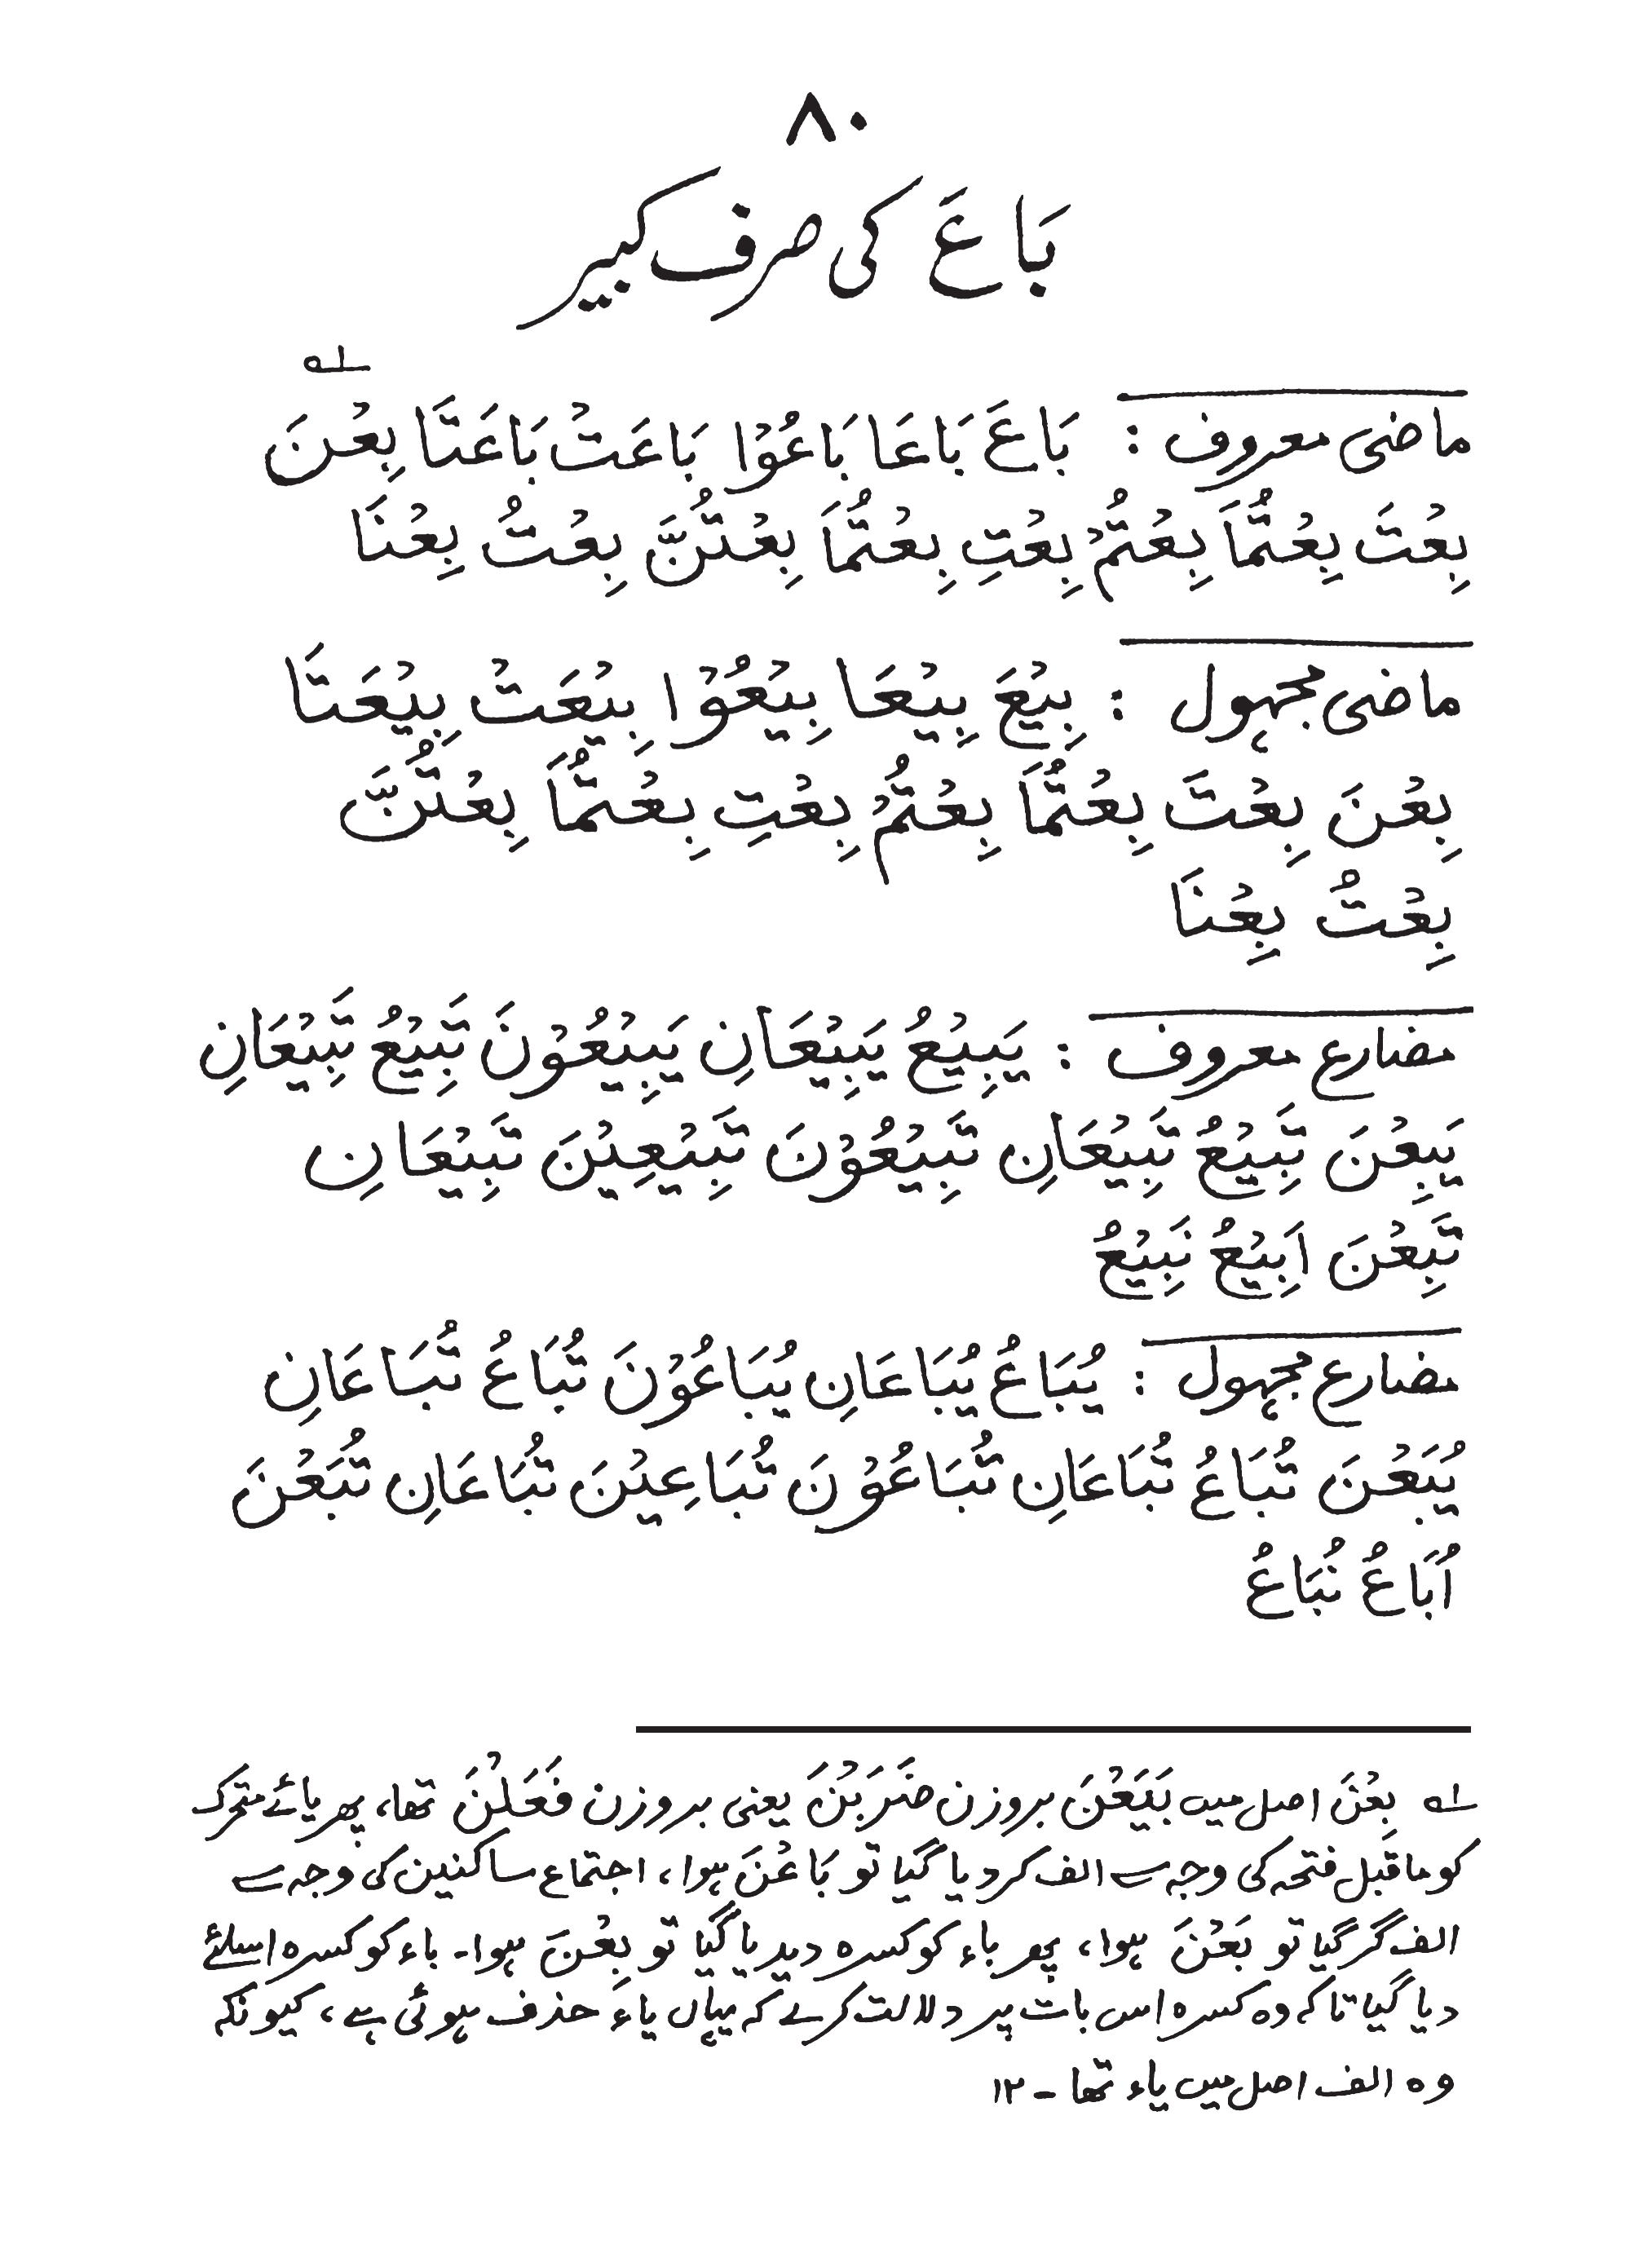 ۸۰
بَاعَ کی صرف کبیر
؎۱
ماضی معروف : بَاعَ بَاعَا بَاعُوْا بَاعَتْ بَاعَتَا بِعْنَ
بِعْتَ بِعْتُمَا بِعْتُمْ بِعْتِ بِعْتُمَا بِعْتُنَّ بِعْتُ بِعْنَا
ماضی مجہول : بِیْعَ بِیْعَا بِیْعُوْا بِیْعَتْ بِیْعَتَا
بِعْنَ بِعْتَ بِعْتُمَا بِعْتُمْ بِعْتِ بِعْتُمَا بِعْتُنَّ
بِعْتُ بِعْنَا
مضارع معروف : یَبِیْعُ یَبِیْعَانِ یَبِیْعُوْنَ تَبِیْعُ تَبِیْعَانِ
یَبِعْنَ تَبِیْعُ تَبِیْعَانِ تَبِیْعُوْنَ تَبِیْعِیْنَ تَبِیْعَانِ
تَبِعْنَ اَبِیْعُ نَبِیْعُ
مضارع مجہول : یُبَاعُ یُبَاعَانِ یُبَاعُوْنَ تُبَاعُ تُبَاعَانِ
یُبَعْنَ تُبَاعُ تُبَاعَانِ تُبَاعُوْنَ تُبَاعِیْنَ تُبَاعَانِ تُبَعْنَ
اُبَاعُ نُبَاعُ
؎۱ بِعْنَ اصل میں بَیَعْنَ بروزن ضَرَبْنَ یعنی بروزن فَعَلْنَ تھا، پھر یائے متحرک
کو ماقبل فتحہ کی وجہ سے الف کر دیا گیا تو بَاعْنَ ہوا، اجتماع ساکنین کی وجہ سے
الف گر گیا تو بَعْنَ ہوا، پھر باء کو کسرہ دیدیا گیا تو بِعْنَ ہوا۔ باء کو کسرہ اسلئے
دیا گیا تاکہ وہ کسرہ اس بات پر دلالت کرے کہ یہاں یاء حذف ہوئی ہے، کیونکہ
وہ الف اصل میں یاء تھا ۔ ۱۲